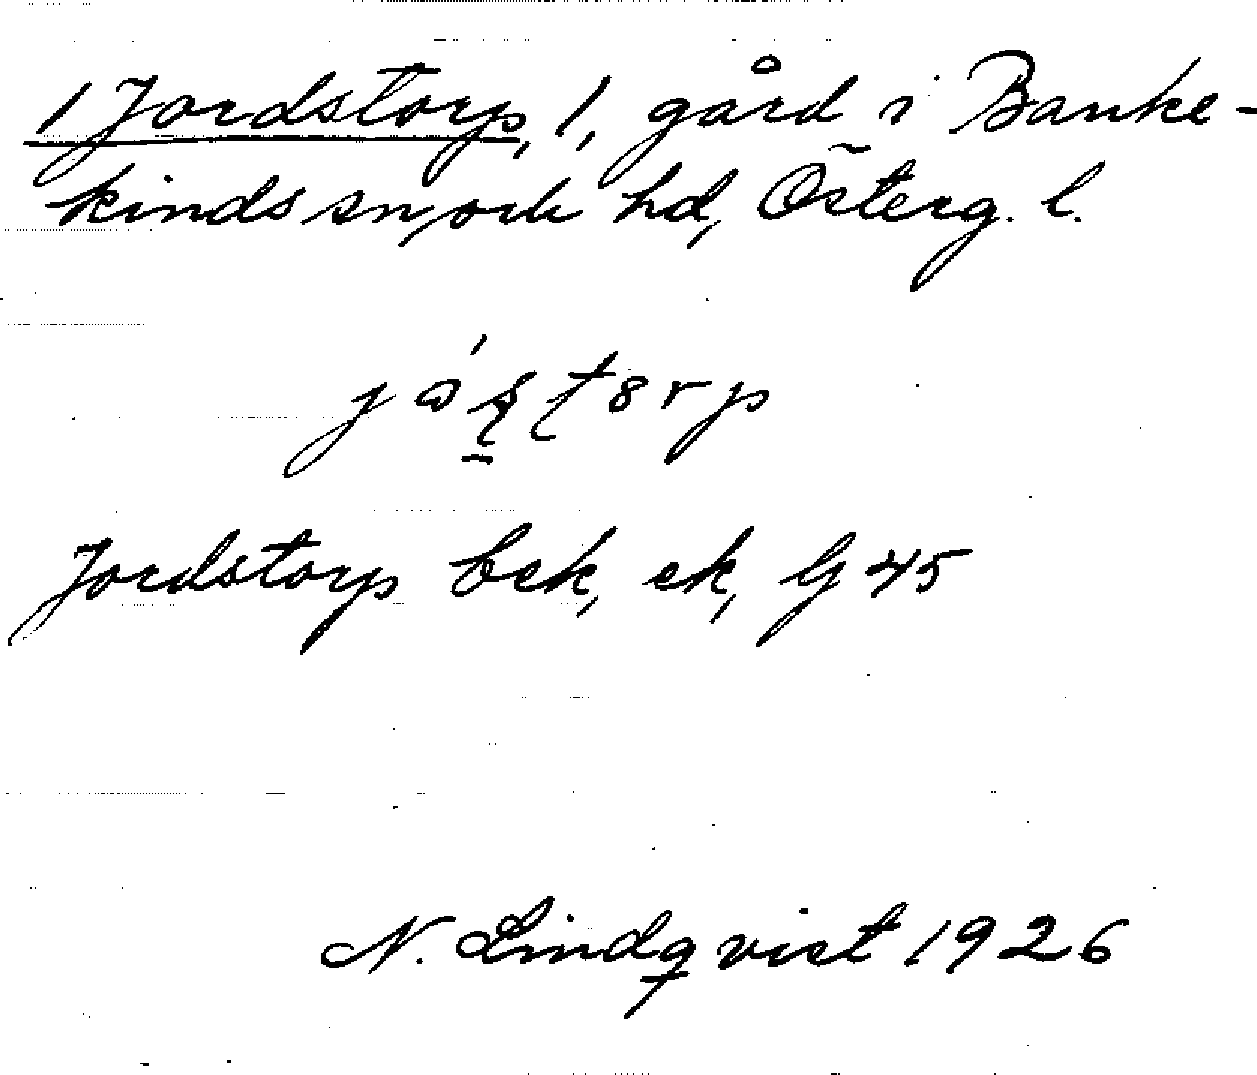 1 Jordstorp, 1, gård i Banke-
kinds sn, och hd, Österg. l.
Jordstorp bek, ek, G 45
N. Lindqvist 1926